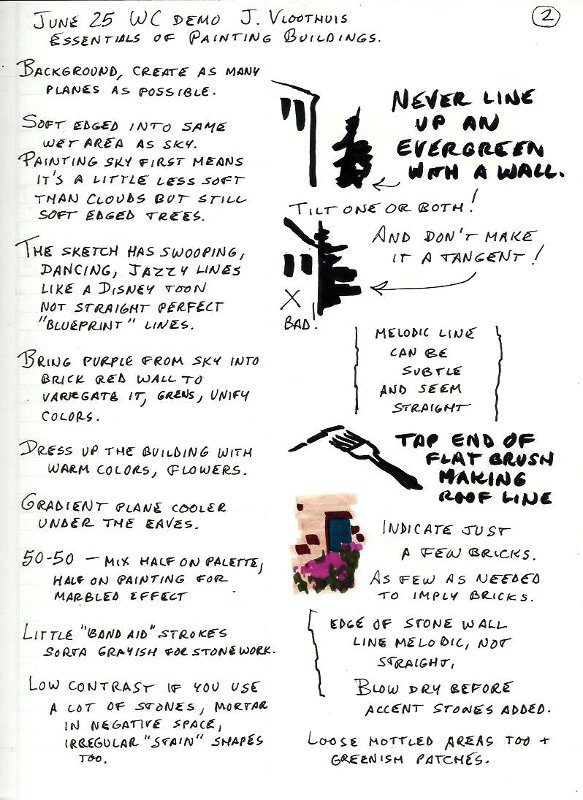 June 25 WC Demo J. Vloothuis
Essentials of Painting Buildings.
2
Background, create as many
planes as possible.
Soft edged into same
wet area as sky.
Painting sky first means
it's a little less soft
than clouds but still
soft edged trees.
The sketch has swooping,
dancing, jazzy lines
like a Disney toon
not straight perfect
"blueprint" lines.
Bring purple from sky into
brick red wall to
varegate it, grens, unify
colors.
Dress up the building with
warm colors, flowers.
Gradient plane cooler
under the eaves.
50-50 – mix half on palette,
half on painting for
marbled effect
Little "band aid" strokes
sorta grayish for stonework.
Low contrast if you use
a lot of stones, mortar
in negative space,
irregular "stain" shapes
too.
Never line
up an
evergreen
with a wall.
Tilt one or both!
And don't make
it a tangent!
X
Bad!
Melodic line
can be
subtle
and seem
straight
Tap end of
flat brush
making
roof line
Indicate just
a few bricks.
As few as needed
to imply bricks.
Edge of stone wall
line melodic, not
straight,
Blow dry before
accent stones added.
Loose mottled areas too +
greenish patches.